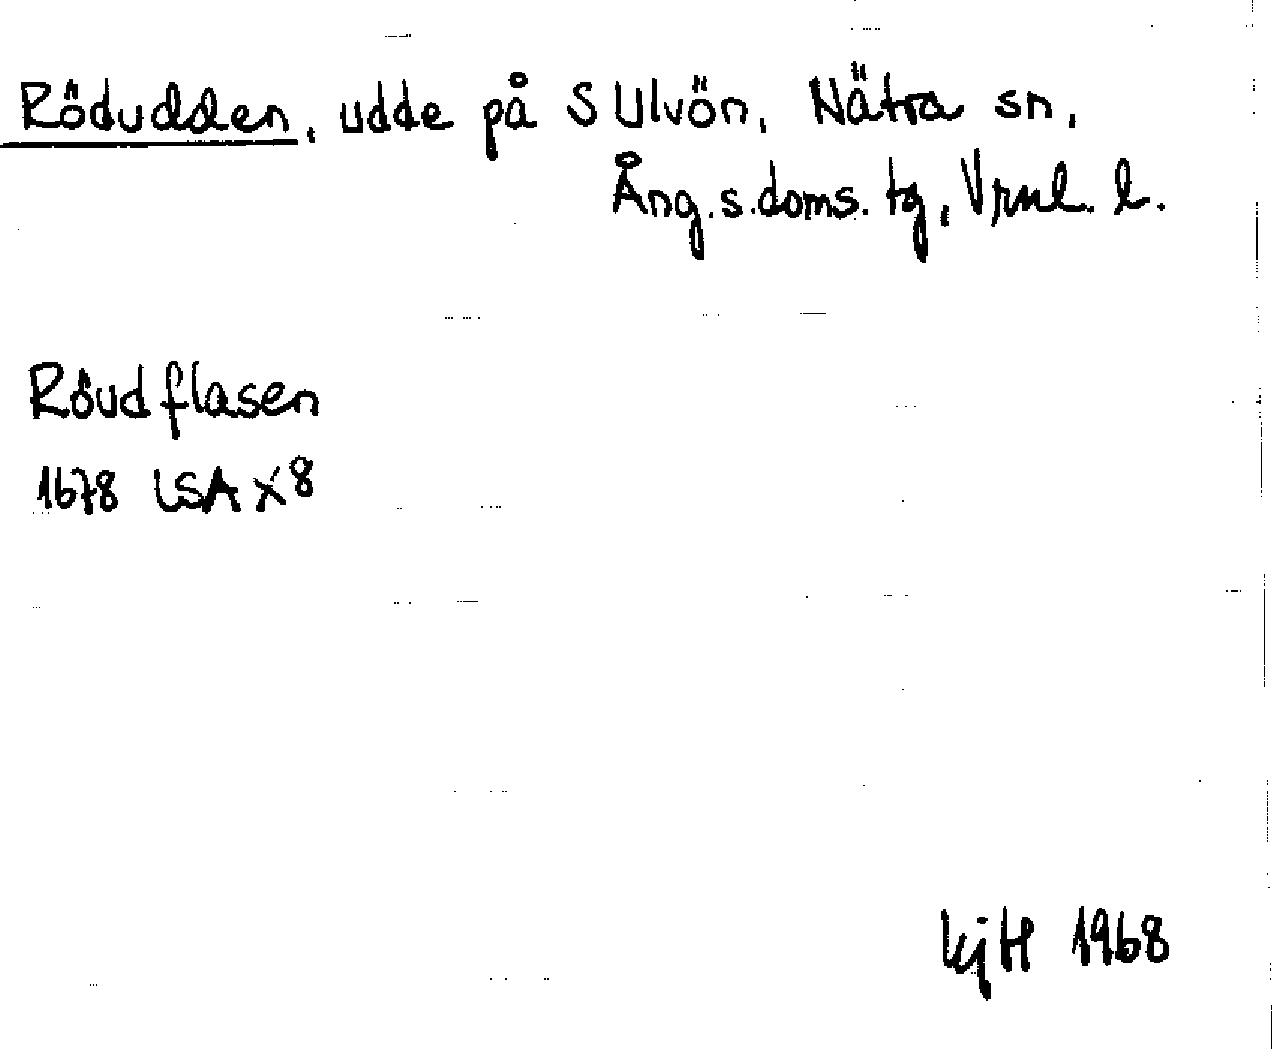 Rödudden, udde på S Ulvön, Nätra sn,
Ång.s.doms. tg, Vrnl. l.
Röud flasen
1678 LSA X8
KjH 1968